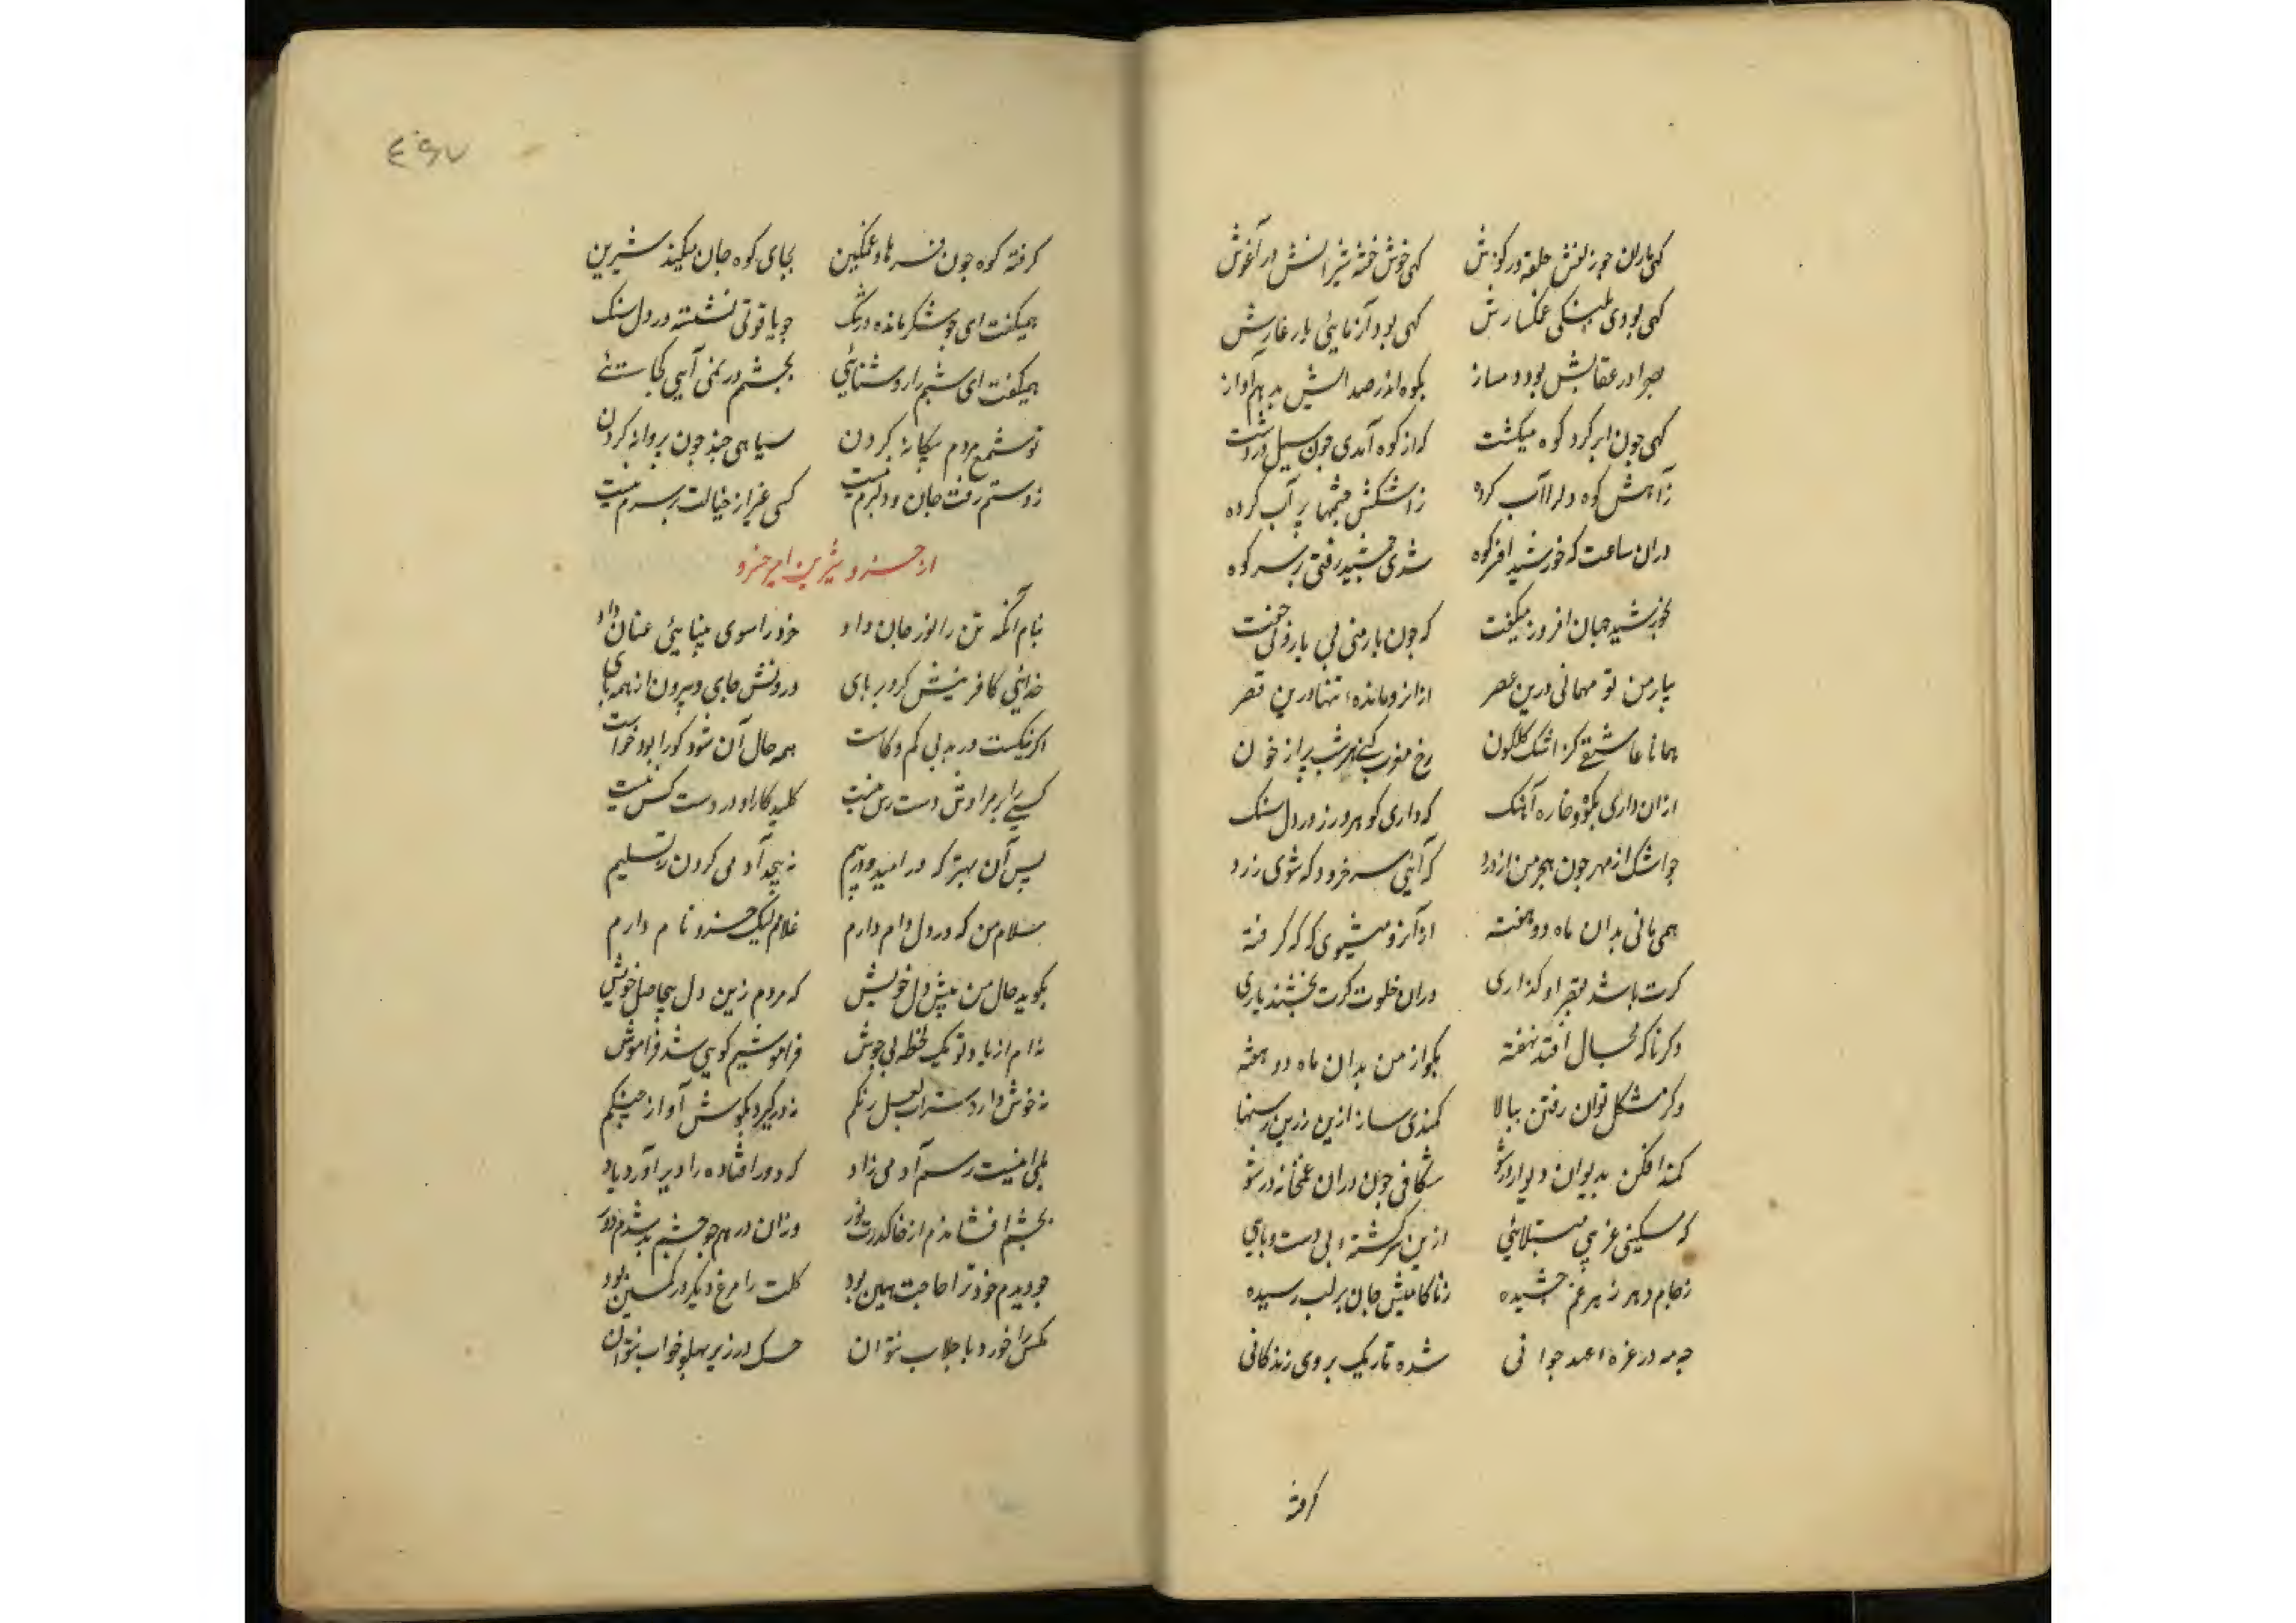 کهی ماران جو زلفش حلقه در کوش کهی خوش خفته شیرانش در آغوش
کهی بودی پلنکی غمکسارش کهی بود آزمایی یار غارش
بصحرا در عقابش بود دمساز بکوه اندر صدایش بد هم آواز
کهی جون ابر کرد کوه میکشت که از کوه آمدی جون سیل در دشت
ز آهش کوه دلرا آب کرده ز اشکش چشمها پر آب کرده
دران ساعت که خورشید افسر کوه شدی جمشید رفتی بر سر کوه
بخورشید جهان افروز میکفت که جون یار منی بی یار و بی جفت
بیار من تو میمانی درین عصر ازانرو مانده تنها درین قصر
همانا عاشقی کز اشک کلکون رخ مغرب کنی هر شب پر از خون
ازان داری بکوه و خاره آهنک که داری کوهر و زر در دل سنک
جو اشک از مهر جون هجر من از درد که آیی سرخ رو و که شوی زرد
همی مانی بدان ماه دو هفته ازانرو میشوی که که کرفته
کرت باشد بقصر او کذاری دران خلوت کرت بخشند یاری
وکر ناکه بحال افتد نهفته بکو از من بدان ماه دو هفته
وکر مشکل توان رفتن ببالا کمندی ساز ازین زرین رسنها
کمند افکن بدیوان و دیوار در شو شکافی جون دران غمخانه در شو
که مسکینی غریبی مبتلایی ازین سرکشته بی دست و پایی
ز جام دهر زهر غم جشیده ز ناکامیش جان بر لب رسیده
جو مه در غره عهد جوانی شده تاریک بروی زندکانی
کرفته
٤٩٧
کرفته کوه جون فرهاد غمکین بجای کوه جان میکند شیرین
همیکفت ای جو شکر مانده در تنک جو یاقوتی نشسته در دل سنک
همیکفت ای شبم را روشنائی بجشم در نمی آیی کجائی
تو شمع مردم بیکانه کردن سیاهی جند جون پروانه کردن
ز دستم رفت جان و دلبرم نیست کسی غیر از خیالت بر سرم نیست
از خسرو شیرین امیر خسرو
بنام آنکه تن را نور جان داد خرد را سوی بینایی عنان داد
خدایی کافرینش کرد بر پای درونش جای و بیرون از همه جای
اکر نیکست ور بد بی کم و کاست همه حال آن شود کورا بود خواست
کسی را بر مرادش دست رس نیست کلید کار او در دست کس نیست
پس آن بهتر که در امید و در بیم نه پیجد آدمی کردن ز تسلیم
سلام من که در دل دام دارم غلام لیک خسرو نام دارم
بکوید حال من پیش دل خویش که مردم زین دل بیحاصل خویش
نه ام از یاد تو یک لحظه بی جوش فراموشیم کویی شد فراموش
نه خوش دارد شراب لعل رنکم نه در کیرد بکوش آواز جنکم
بلی اینست رسم آدمی زاد که دور افتاده را دیر آورد یاد
بجشم افشاندم از خاک درت نور وزان در هم جو جشم بد شدم دور
جو دیدم خود ترا حاجت همین بود کلت را مرغ دیکر در کمین بود
مکس را خورد با جلاب نتوان خسک در زیر پهلو خواب نتوان